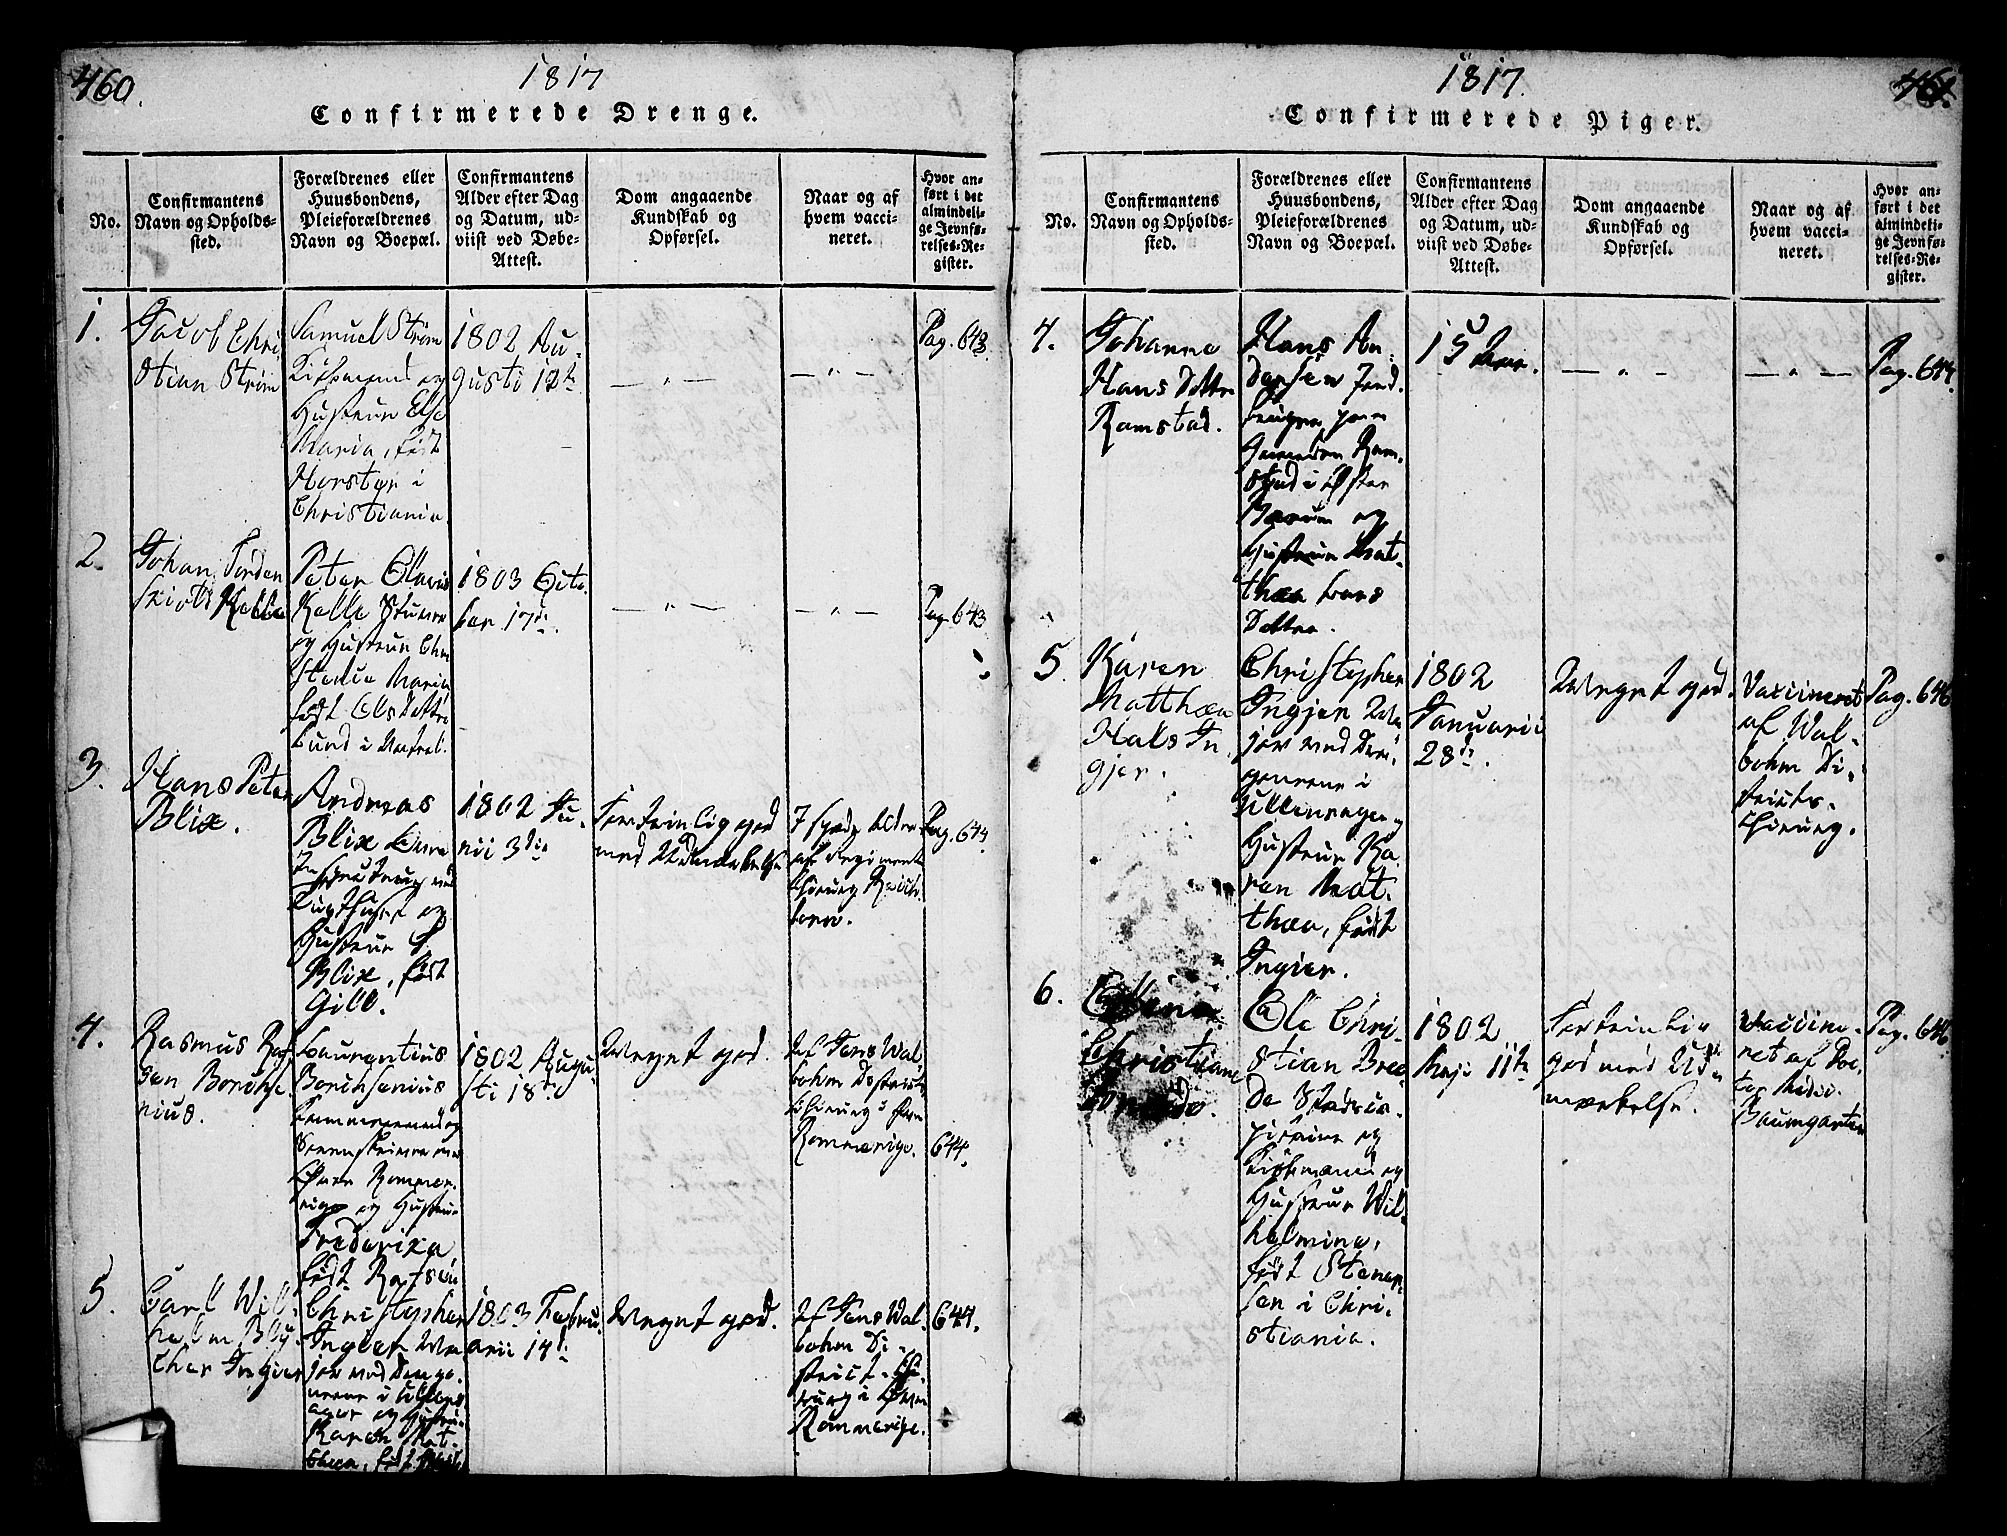 460.
1817
Confirmerede Drenge.
No.
Confirmantens Navn og Opholds-sted.
Forældrenes eller Huusbondens, Pleieforældrenes Navn og Boepæl.
Confirmantens Alder efter Dag og Datum, ud-viist ved Døbe-Attest.
Dom angaaende Kundskab og Opførsel.
Naar og af hvem vacci-neret.
Hvor an-ført i det almindeli-ge Jevnfø-relses-Re-gister.
1.
Jacob Chri
stian Strøm
Samuel Strøm
Kiøbmand og
Hustrue Else
Maria, født
Horster i
Christiania
1802 Au-
gusti 12te
— " —
— " —
Pag. 643
2.
Johan Torden
skiold Kelle
Peter Olavis
Kelle
og Hustrue Chri
Maria
født Ols Datter
Lund i
1803 Octo
ber 17de.
— " —
— " —
Pag. 643
3.
Hans Peter
Blix.
Andreas
Blix
Tugthuset og
Hustrue
Blix, født
Gill.
1802 Ju-
nii 3die
Fortrinlig god
med Udmærkelse
7
af Regiments
Chirurg
Pag. 644
4.
Rasmus
sen Borchse
nius.
Laurentius
Borchsenius
og
Sorenskriver
Øvre Rommer-
rige og Hustrue
Frederika
født
1802 Augu-
sti 18de
Meget god.
Af Jens Wal-
bohm Distrikts
Chirurg i Øvre
Rommerige.
644.
5.
Carl Wil-
helm Bly-
cher Ingier
Christopher
Ingier Ma
jor ved
i Ullens
ager og Hustrue
Karen Mat-
thea, født
1803 Febru-
arii 14de
Meget god.
Af Jens Wal-
bohm Di-
strict-Chi-
rurg i Øvre
Rommerige.
644.
1817.
461.
Confirmerede Piger.
No.
Confirmantens Navn og Opholds-sted.
Forældrenes eller Huusbondens, Pleieforældrenes Navn og Boepæl.
Confirmantens Alder efter Dag og Datum, ud-viist ved Døbe-Attest.
Dom angaaende Kundskab og Opførsel.
Naar og af hvem vacci-neret.
Hvor an-ført i det almindeli-ge Jevnfø-relses-Re-gister.
4.
Johanne
Hans Datter
Ramstad.
Hans An-
dersen
Ram-
stad i Øster
Bærum og
Hustrue Mat-
thea Lars
Datter.
15 Aar.
— " —
— " —
Pag. 644.
5
Karen
Matthea
Hals In
gjer.
Christopher
Ingjer Ma
jor ved
i
Ullensager og
Hustrue Ka-
ren Mat-
thea, født
Ingier.
1802
Januarii
28de.
Meget god.
Vaccineret
af Wal-
bohm Di-
stricts-
Chirurg.
Pag. 646
6.
Christiane
Ole Chri-
stian Bre-
da
og
Kiøbmand og
Hustrue Wil-
helmine,
født Stener-
sen i Chri-
stiania.
1802
Maji 11te
Fortrinlig
god med Ud-
mærkelse.
Vaccine-
ret af Doc-
tor Medic.
Baumgarten
Pag. 646